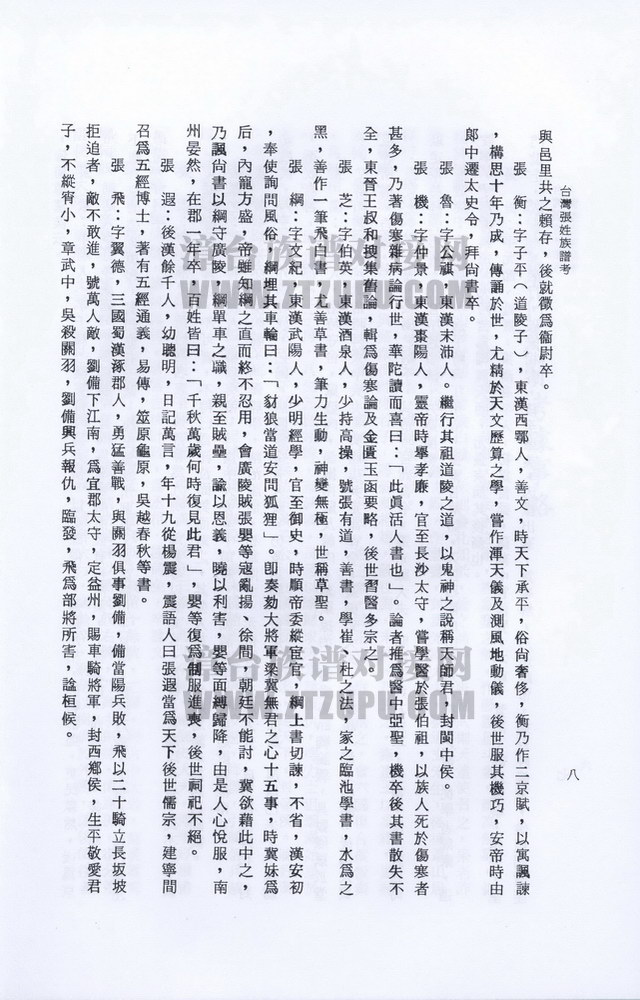 台灣張姓族譜考
八
與邑里共之賴存，後就徵爲衞尉卒。
張　衡：字子平（道陵子），東漢西鄂人，善文，時天下承平，俗尚奢侈，衡乃作二京賦，以寓諷諫
，構思十年乃成，傳誦於世，尤精於天文歷算之學，嘗作渾天儀及測風地動儀，後世服其機巧，安帝時由
郎中遷太史令，拜尚書卒。
張　魯：字公祺，東漢末沛人。繼行其祖道陵之道，以鬼神之說稱天師君，封閬中侯。
張　機：字仲景，東漢棗陽人，靈帝時舉孝廉，官至長沙太守，嘗學醫於張伯祖，以族人死於傷寒者
甚多，乃著傷寒雜病論行世，華陀讀而喜曰：「此眞活人書也」。論者推爲醫中亞聖，機卒後其書散失不
全，東晉王叔和搜集舊論，輯爲傷寒論及金匱玉函要略，後世習醫多宗之。
張　芝：字伯英，東漢酒泉人，少持高操，號張有道，善書，學崔、杜之法，家之臨池學書，水爲之
黑，善作一筆飛白書，尤善草書，筆力生動，神變無極，世稱草聖。
張　綱：字文紀，東漢武陽人，少明經學，官至御史，時順帝委縱宦官，綱上書切諫，不省，漢安初
，奉使詢問風俗，綱埋其車輪曰：「豺狼當道安問狐狸」。卽奏劾大將軍梁冀無君之心十五事，時冀妹爲
后，內寵方盛，帝雖知綱之直而終不忍用，會廣陵賊張嬰等寇亂揚、徐間，朝廷不能討，冀欲藉此中之，
乃諷尚書以綱守廣陵，綱單車之職，親至賊壘，諭以恩義，曉以利害，嬰等面縛歸降，由是人心悅服，南
州晏然，在郡一年卒，百姓皆曰：「千秋萬歲何時復見此君」，嬰等復爲制服進喪，後世祠祀不絕。
張　遐：後漢餘千人，幼聰明，日記萬言，年十九從楊震，震語人曰張遐當爲天下後世儒宗，建寧間
召爲五經博士，著有五經通義，易傳，筮原龜原，吳越春秋等書。
張　飛：字翼德，三國蜀漢涿郡人，勇猛善戰，與關羽俱事劉備，備當陽兵敗，飛以二十騎立長坂坡
拒追者，敵不敢進，號萬人敵，劉備下江南，爲宜郡太守，定益州，賜車騎將軍，封西鄉侯，生平敬愛君
子，不縱宵小，章武中，吳殺關羽，劉備興兵報仇，臨發，飛爲部將所害，諡桓候。
漳台族谱对接网
WWW.ZTZUPU.COM
漳台族谱对接网
WWW.ZTZUPU.COM